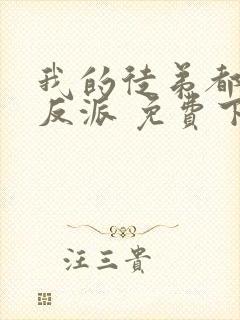 我的徒弟都
反派 免费下
汪三貴